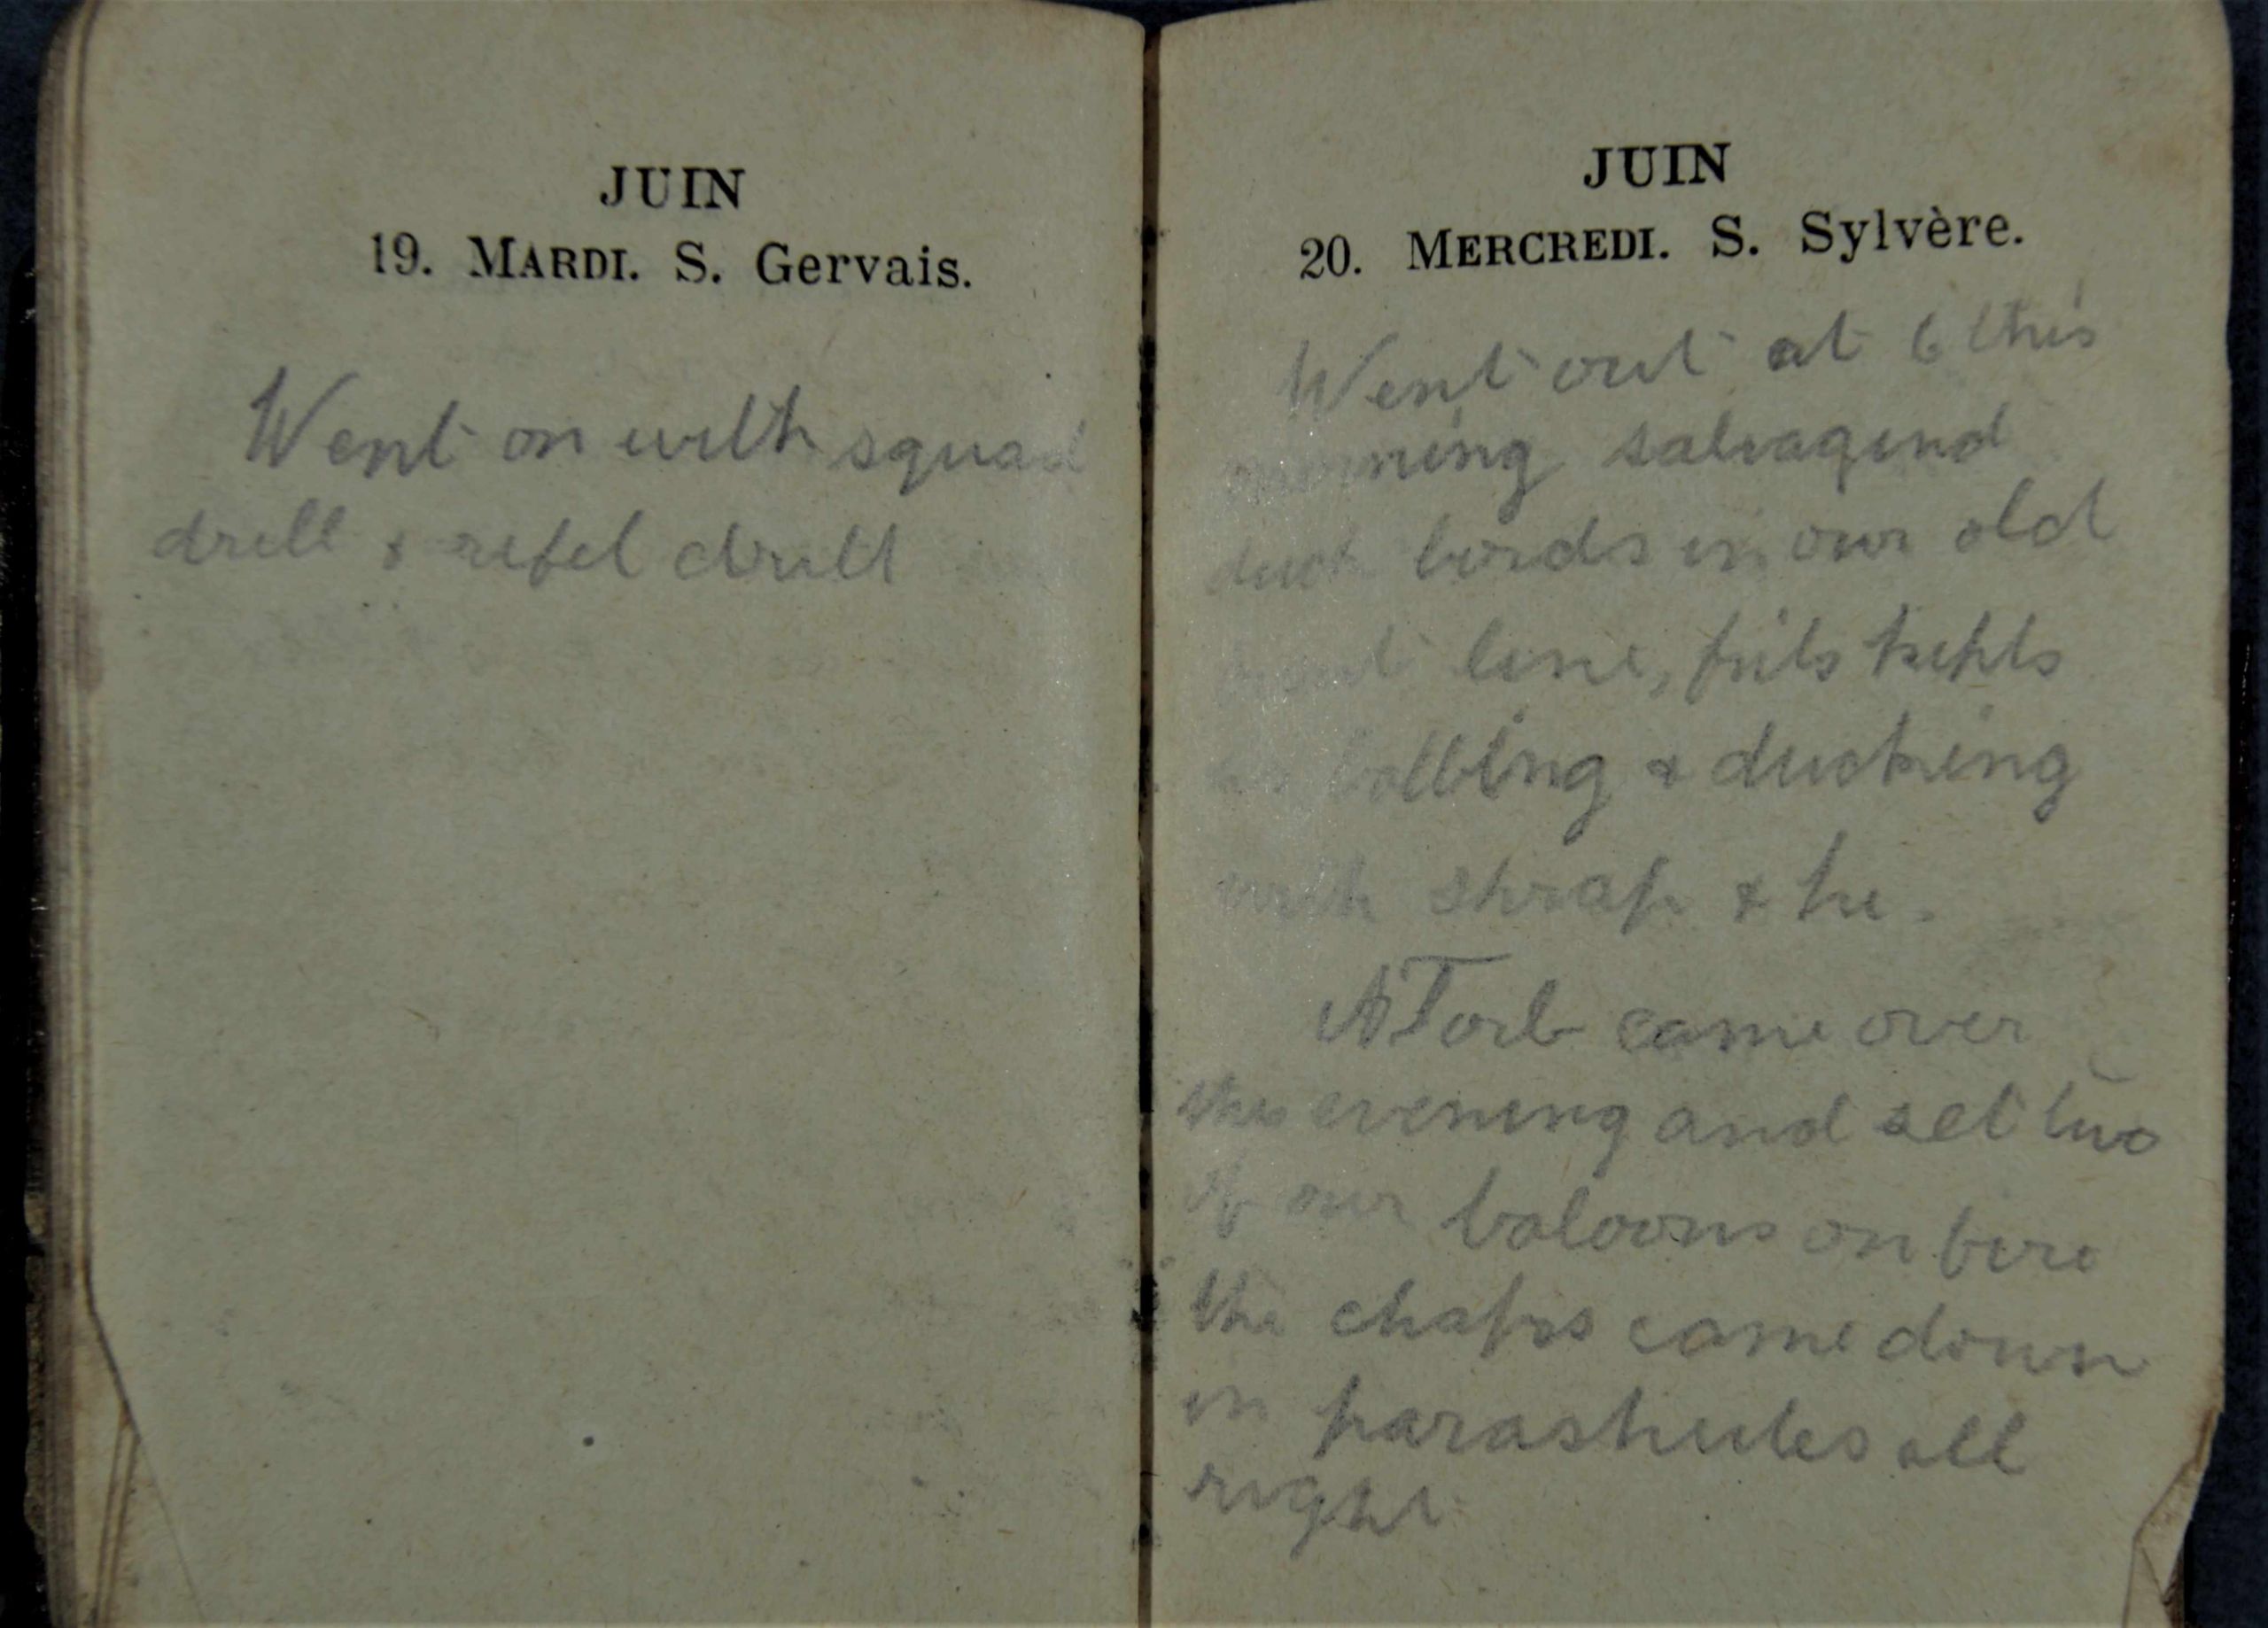 JUIN
19. MARDI. S. Gervais.
Went on with squad
drill & rifel drill
JUIN
20. MERCREDI. S. Sylvère.
Went out at 6 this
morning salvagind
duck bords in our old
front line, frits kepts
us bobbing & ducking
with shrap & he.
A Torb came over
this evening and set two
of our baloons on fire
the chaps came down
in parashutes all
right